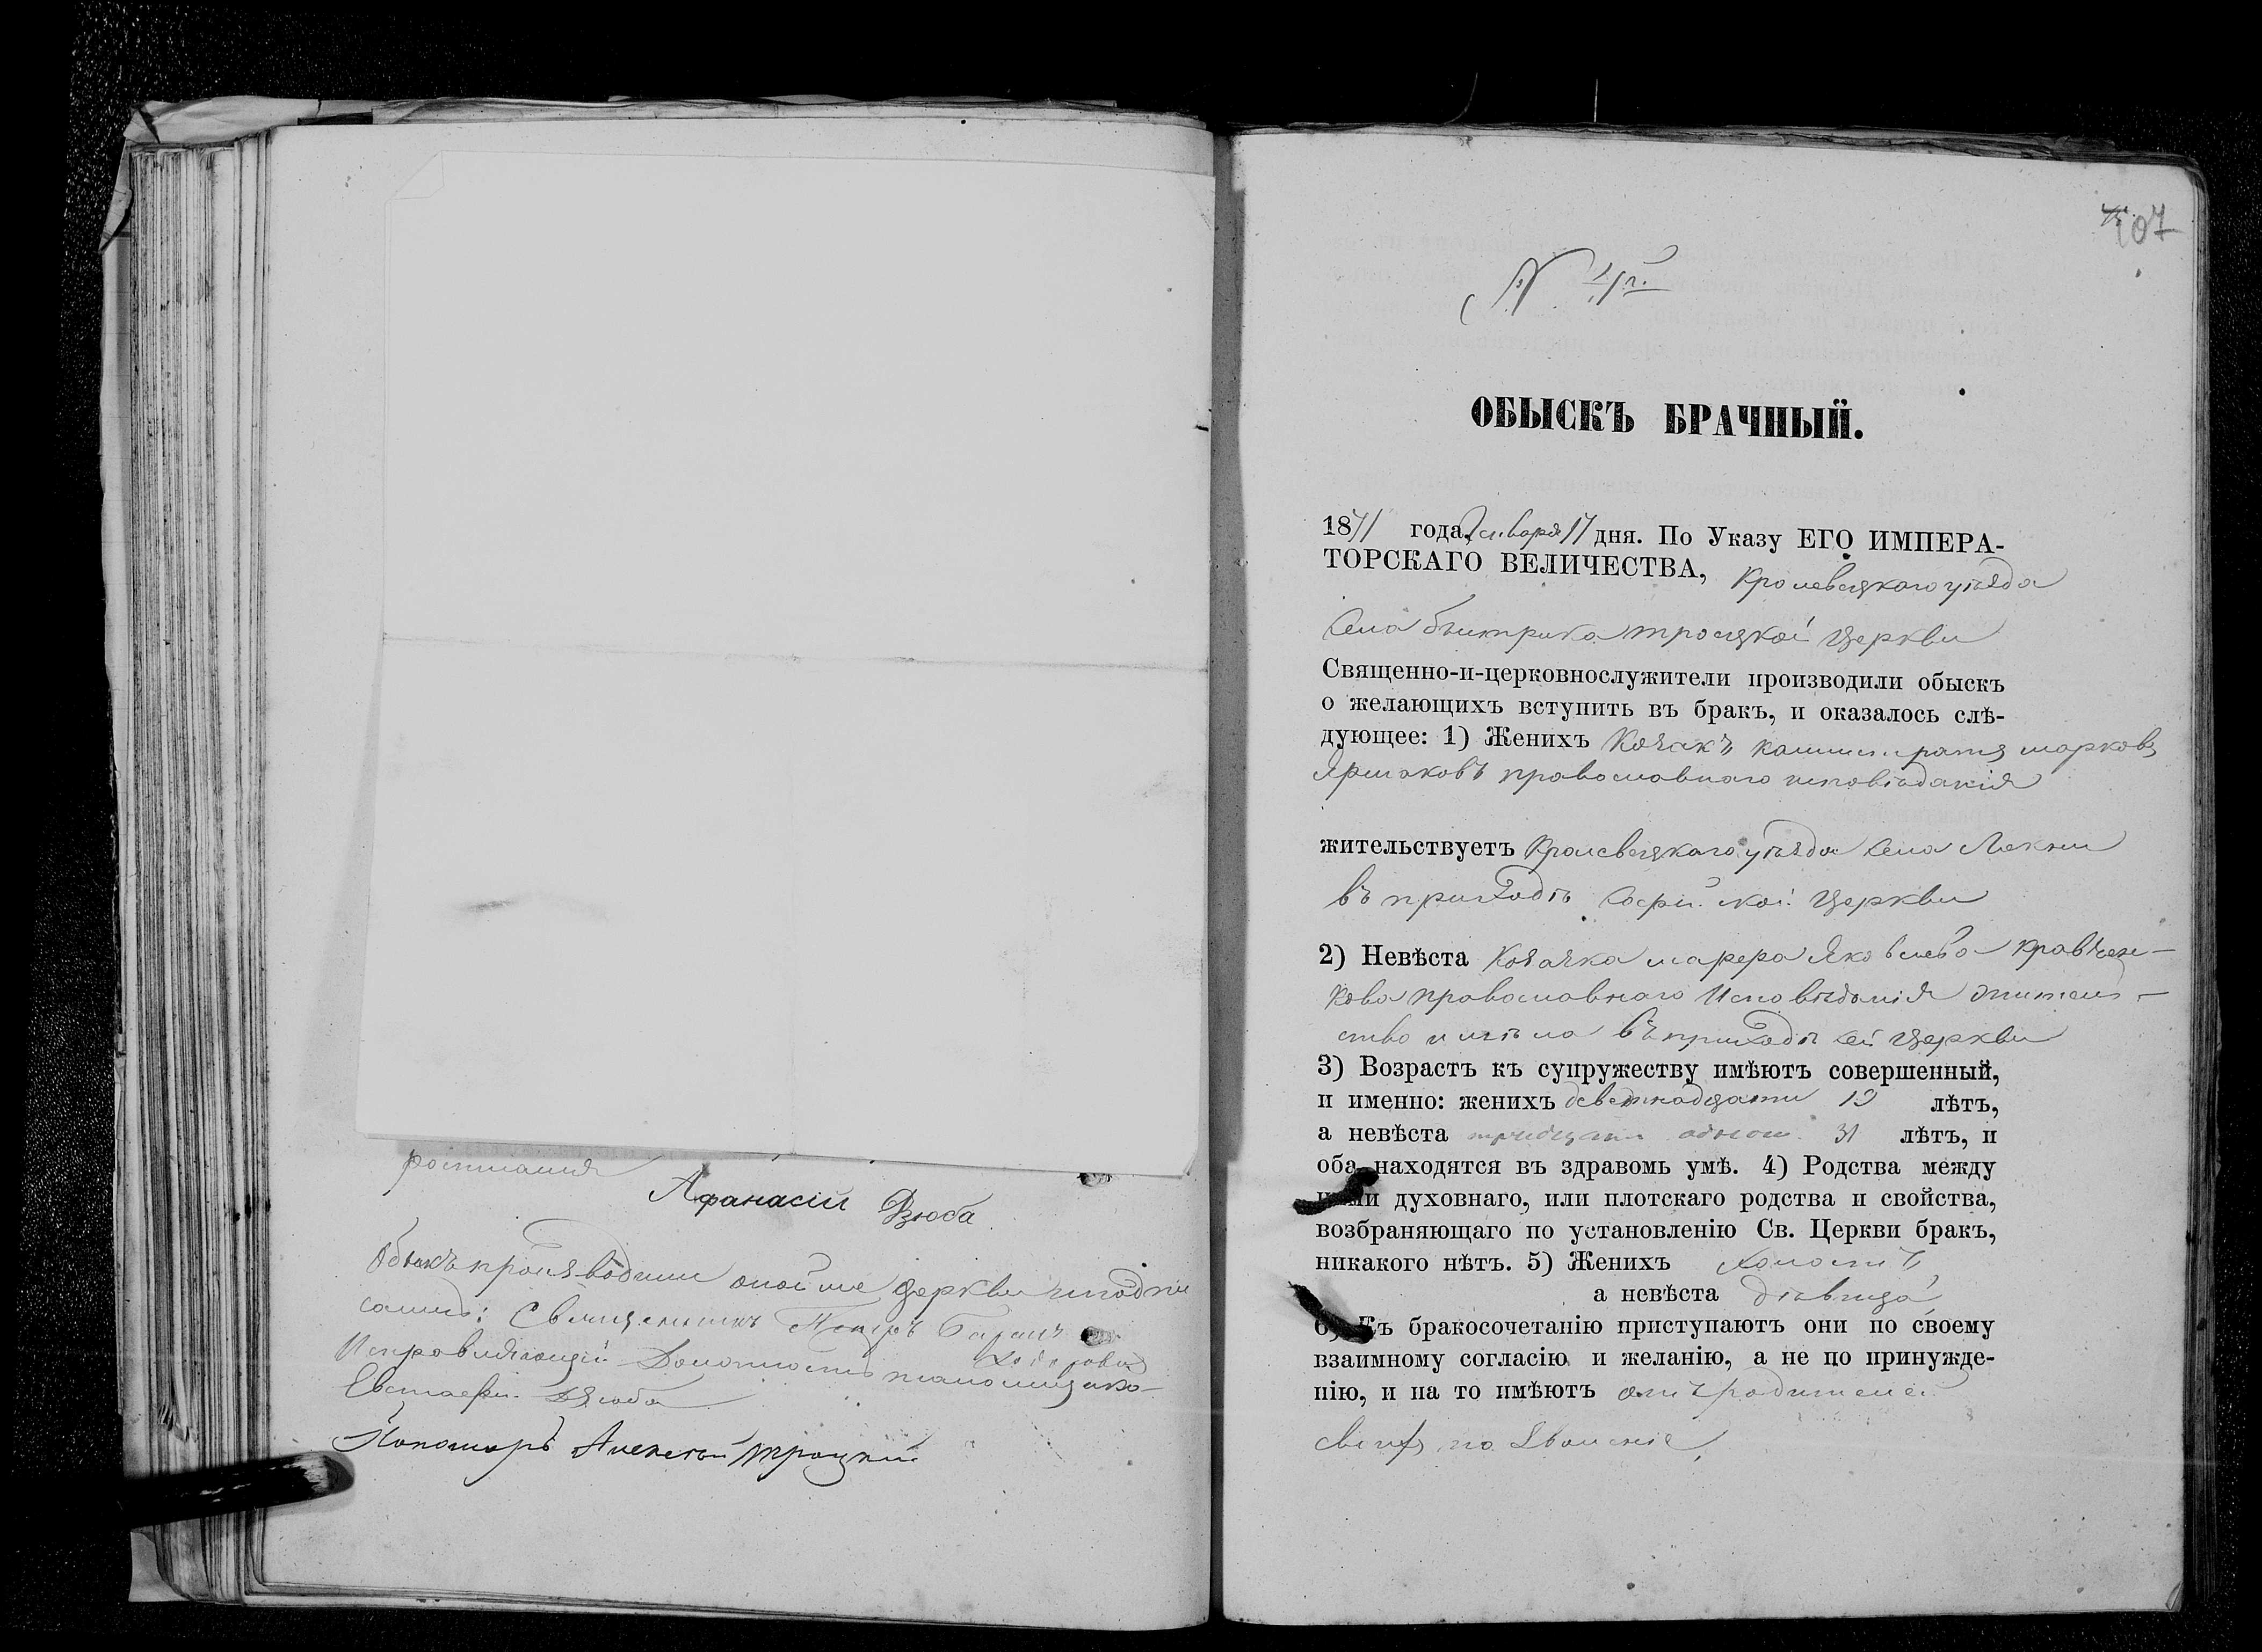 росписался
Афанасій Дзюба
Обыскъ производили оной же Церкви и подпи
сались: Священникъ Петръ
Исправляющій Должность
Евстафій Дзюба
Пономарь Алексѣй Троцкий
107
N
ОБЫСКЪ БРАЧНЫЙ.
1871 года Января 17 дня. По Указу ЕГО ИМПЕРА-
ТОРСКАГО ВЕЛИЧЕСТВА, Кролевецкаго уѣзда
Села быстрика троицкой Церкви
Священно-и-церковнослужители производили обыскъ
о желающихъ вступить въ бракъ, и оказалось слѣ-
дующее: 1) Женихъ Козакъ марковъ
Ярмаковъ православнаго исповѣданія
жительствуетъ Кролевецкаго уѣзда Села
въ приходѣ Церкви
2) Невѣста Козачка Яковлева Кравчен-
кова православнаго Исповѣданія жител-
ство имѣла въ приходѣ сей Церкви
3) Возрастъ къ супружеству имѣютъ совершенный,
и именно: женихъ девятнадцати 19 лѣтъ,
а невѣста тридцати одного 31 лѣтъ, и
оба находятся въ здравомь умѣ. 4) Родства между
ними духовнаго, или плотскаго родства и свойства,
возбраняющаго по установленію Св. Церкви бракъ,
никакого нѣтъ. 5) Женихъ холостъ
а невѣста дѣвица
6) Къ бракосочетанію приступаютъ они по своему
взаимному согласію и желанію, а не по принужде-
нію, и на то имѣютъ отъ родителей
своихъ позволеніе